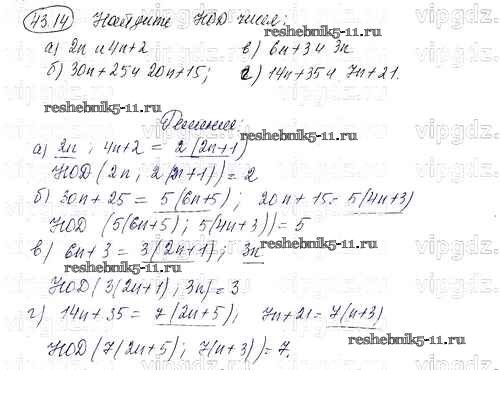 43.14 Найдите НОД чисел:
а) 2n и 4n+2 в) 6n+3 и 3n
б) 30n+25 и 20n+15; г) 14n+35 и 7n+21.
reshebnik5-11.ru reshebnik5-11.ru
Решение:
reshebnik5-11.ru
а) 2n; 4n+2 = 2(2n+1)
НОД (2n; 2(2n+1)) = 2
б) 30n+25 = 5(6n+5); 20n+15 = 5(4n+3)
НОД (5(6n+5); 5(4n+3)) = 5
в) 6n+3 = 3(2n+1); 3n reshebnik5-11.ru
reshebnik5-11.ru
НОД (3(2n+1); 3n) = 3
г) 14n+35 = 7(2n+5); 7n+21 = 7(n+3)
reshebnik5-11.ru
НОД (7(2n+5); 7(n+3)) = 7.